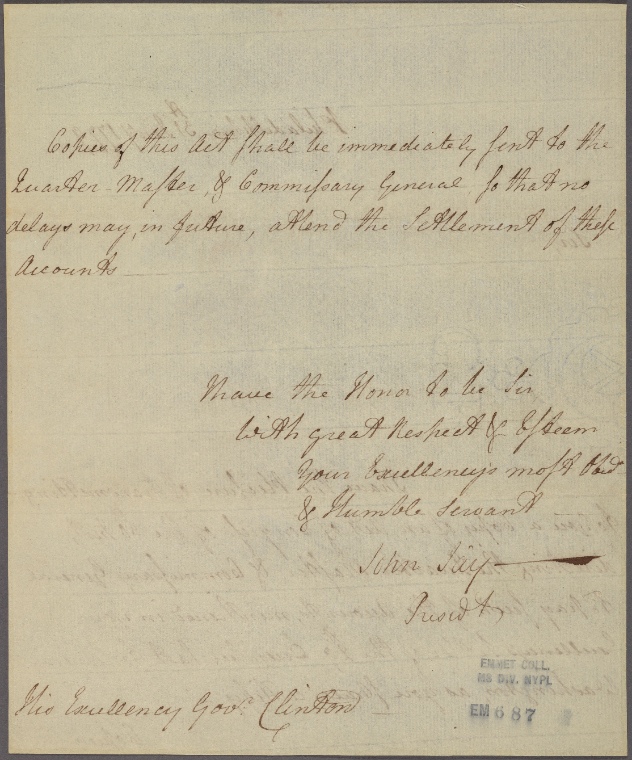 Copies of this Act shall be immediately sent to the
Quarter-Master, & Commissary General so that no
delays may, in future, attend the Settlement of these
Accounts
I have the Honor to be Sir
With great Respect & Esteem
Your Excellencys most Obed
& Humble Servant
John Jay
Presidt
His Excellency Govr. Clinton
EMMET COLL.
MS DIV. NYPL
EM 687